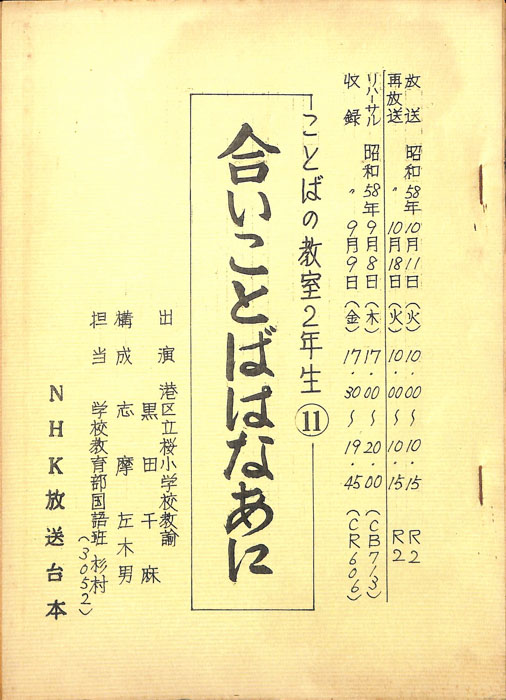 放送 昭和58年10月11日(火)10・00〜10・15 R2
再放送 〃 10月18日(火)10・00〜10・15 R2
リハーサル 昭和58年9月8日(木)17・00〜20・00(CB713)
収録 〃 9月9日(金)17・30〜19・45(CR606)
ことばの教室2年生⑪
合いことばはなあに
出演 港区立桜小学校教諭
黒田千麻
構成 志摩左木男
担当 学校教育部国語班 杉村(3052)
NHK放送台本